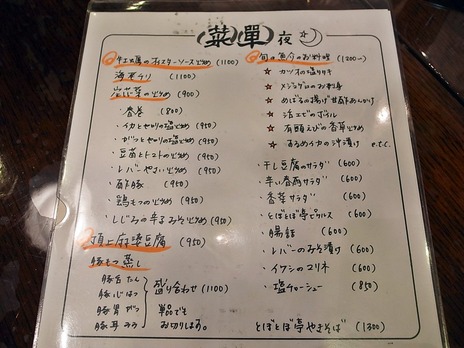 菜單 夜
牡蠣のオイスターソース炒め (1100)
海老チリ (1100)
(900)
・春巻 (800)
・イカとセロリの塩炒め (950)
・がつとセロリの塩炒め (950)
・豆苗とトマトの炒め (950)
・レバーやさい炒め (950)
・酢豚 (950)
・鶏もつの炒め (950)
・しじみの辛みそ炒め (950)
頂上麻婆豆腐 (950)
豚もつ蒸し
豚舌 たん
豚心 はつ
豚胃 がつ
豚耳 みみ
盛り合わせ (1100)
単品でも
お切りします。
旬の魚介のお料理 (1200〜)
★ カツオの塩タタキ
★ のお刺身
★ めばるの揚げ 甘酢あんかけ
★ 活エビのボイル
★ 有頭えびの香草炒め
★ するめイカの沖漬け e.t.c.
・干し豆腐のサラダ (600)
・辛い春雨サラダ (600)
・香菜サラダ (600)
・とばとば亭ピクルス (600)
・腸詰 (600)
・レバーのみそ漬け (600)
・イワシのマリネ (600)
・塩チャーシュー (850)
とばとば亭やきそば (1300)